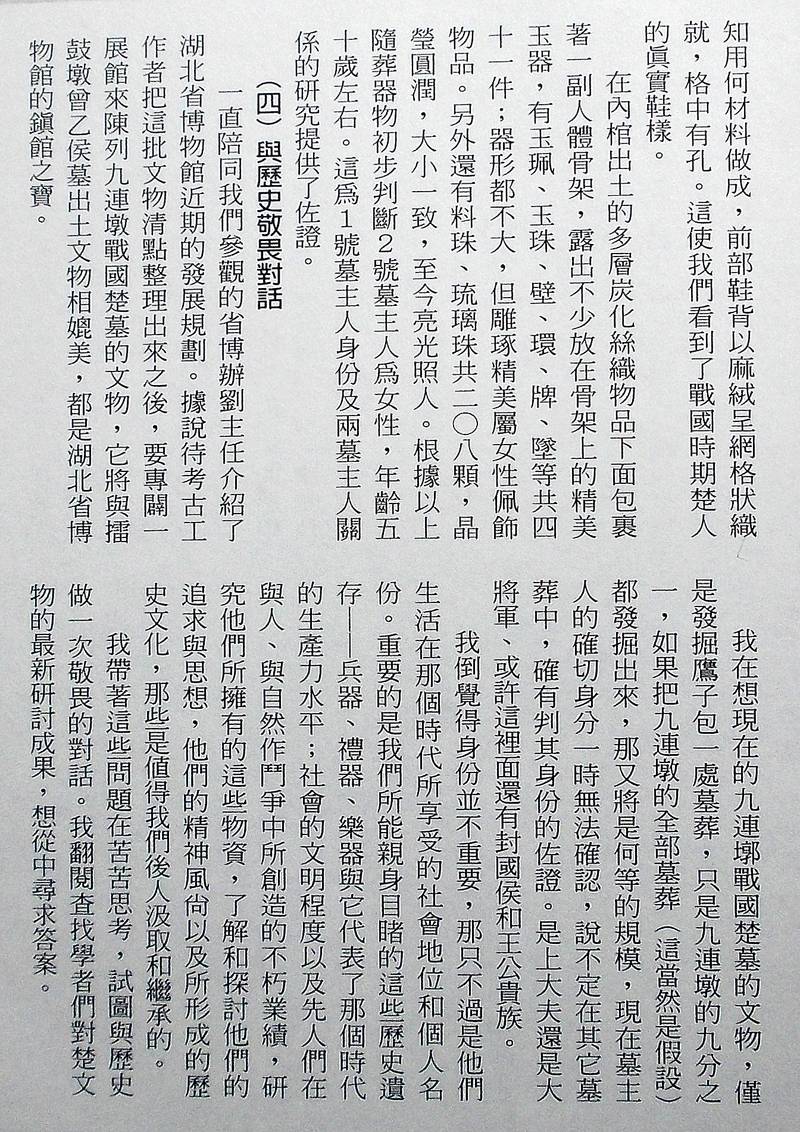 知用何材料做成，前部鞋背以麻絨呈網格狀織
就，格中有孔。這使我們看到了戰國時期楚人
的真實鞋樣。
在內棺出土的多層炭化絲織物品下面包裹
著一副人體骨架，露出不少放在骨架上的精美
玉器，有玉珮、玉珠、壁、環、牌、墜等共四
十一件；器形都不大，但雕琢精美屬女性佩飾
物品。另外還有料珠、琉璃珠共二〇八顆，晶
瑩圓潤，大小一致，至今亮光照人。根據以上
隨葬器物初步判斷2號墓主人爲女性，年齡五
十歲左右。這爲1號墓主人身份及兩墓主人關
係的研究提供了佐證。
（四）與歷史敬畏對話
一直陪同我們參觀的省博辦劉主任介紹了
湖北省博物館近期的發展規劃。據說待考古工
作者把這批文物清點整理出來之後，要專闢一
展館來陳列九連墩戰國楚墓的文物，它將與擂
鼓墩曾乙侯墓出土文物相媲美，都是湖北省博
物館的鎮館之寶。
我在想現在的九連墎戰國楚墓的文物，僅
是發掘鷹子包一處墓葬，只是九連墩的九分之
一，如果把九連墩的全部墓葬（這當然是假設）
都發掘出來，那又將是何等的規模，現在墓主
人的確切身分一時無法確認，說不定在其它墓
葬中，確有判其身份的佐證。是上大夫還是大
將軍、或許這裡面還有封國侯和王公貴族。
我倒覺得身份並不重要，那只不過是他們
生活在那個時代所享受的社會地位和個人名
份。重要的是我們所能親身目睹的這些歷史遺
存——兵器、禮器、樂器與它代表了那個時代
的生產力水平；社會的文明程度以及先人們在
與人、與自然作鬥爭中所創造的不朽業績，研
究他們所擁有的這些物資，了解和探討他們的
追求與思想，他們的精神風尚以及所形成的歷
史文化，那些是值得我們後人汲取和繼承的。
我帶著這些問題在苦苦思考，試圖與歷史
做一次敬畏的對話。我翻閱查找學者們對楚文
物的最新研討成果，想從中尋求答案。